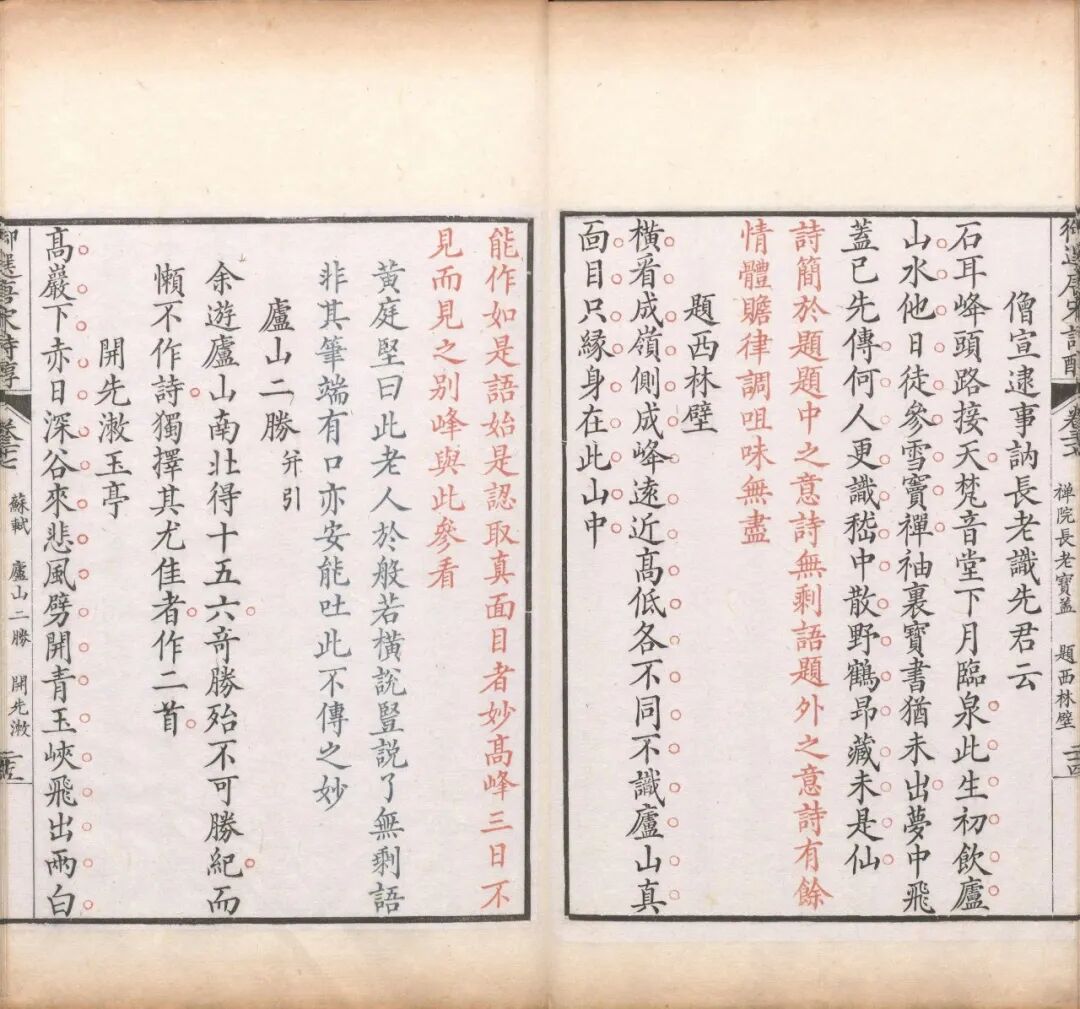 御選唐宋詩醇
卷三十七
禅院長老寶蓋
題西林壁
二十四
僧宣逮事訥長老識先君云
石耳峰頭路接天梵音堂下月臨泉此生初飲廬
山水他日徒參雪竇禪袖裏寶書猶未出夢中飛
蓋已先傳何人更識嵇中散野鶴昂藏未是仙
詩簡於題題中之意詩無剩語題外之意詩有餘
情體贍律調咀味無盡
題西林壁
橫看成嶺側成峰遠近高低各不同不識廬山真
面目只緣身在此山中
能作如是語始是認取真面目者妙高峰三日不
見而見之别峰與此參看
黃庭堅曰此老人於般若橫說豎説了無剩語
非其筆端有口亦安能吐此不傳之妙
廬山二勝并引
余遊廬山南北得十五六竒勝殆不可勝紀而
懶不作詩獨擇其尤佳者作二首
開先漱玉亭
高巖下赤日深谷來悲風劈開青玉峽飛出兩白
御選唐宋詩醇
卷三十七
蘇軾
廬山二勝
開先漱
二十五